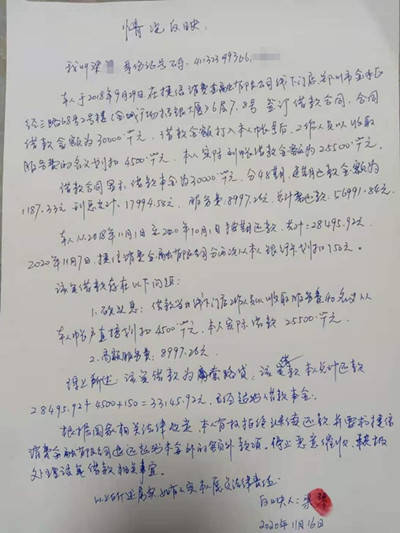 情况反映
我叫梁 身份证号码:41323199366
本人于2018年9月29日在捷信消费金融有限公司线下门店郑州市金水区
经三路68号2号楼 6层7.8号签订借款合同,合同
借款金额为30000元,借款金额打入本人帐号后,工作人员以收取
服务费的名义划扣4500元,本人实际到帐借款金额为25500元.
借款合同显示,借款本金为30000元,分48期,每期还款金额为
1187.33元,利息共计:17994.58元,服务费:8997.26元,共计需还款:56991.84元
本人从2018年11月1日至2020年10月1日按期还款,共计:28495.92元
2020年11月7日,捷信消费金融有限公司分两次从本人银行卡划扣150元.
该笔借款存在以下问题:
1.砍头息:借款当日线下门店工作人员以收取服务费的名义从
本人帐户直接划扣4500元,本人实际借款25500元.
2.高额服务费:8997.26元.
综上所述:该笔借款为套路贷,该笔款本人共计还款
28495.92+4500+150=33145.92元,已超出借款本金.
根据国家相关法律规定,本人有权拒绝继续还款,并要求捷信
消费金融有限公司退还超出本金外的额外款项,停止恶意催收,积极
处理该笔借款相关事宜.
以上所述属实,如有不实,愿负法律责任.
反映人:梁
2020年11月16日